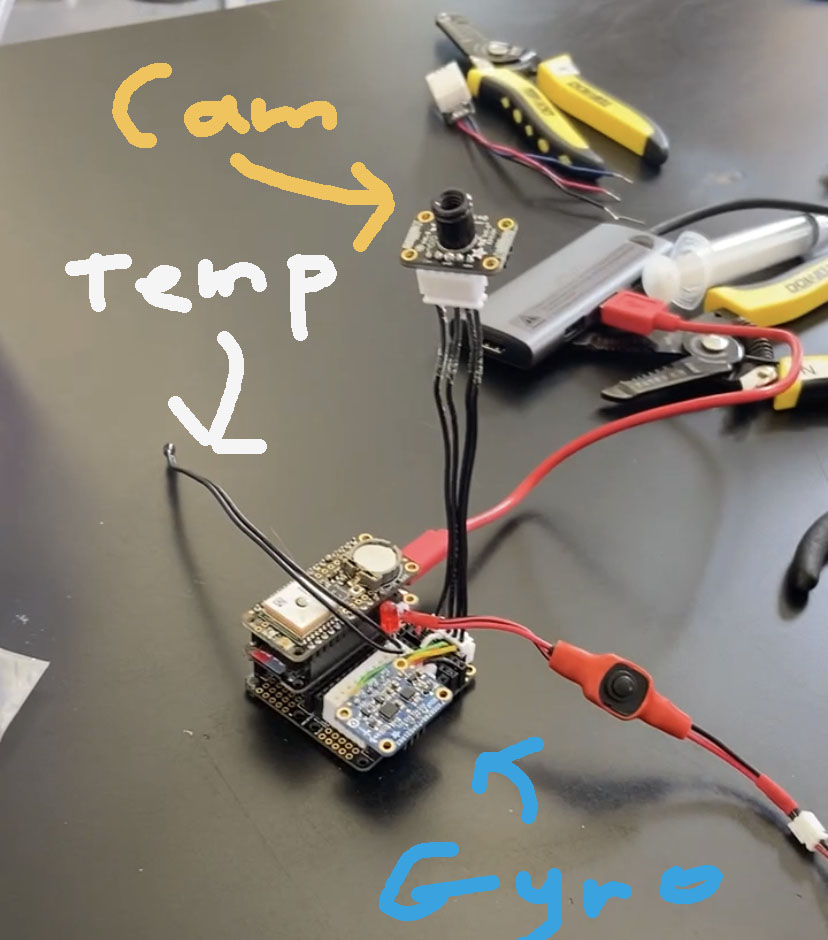 Cam
Temp
Gyro